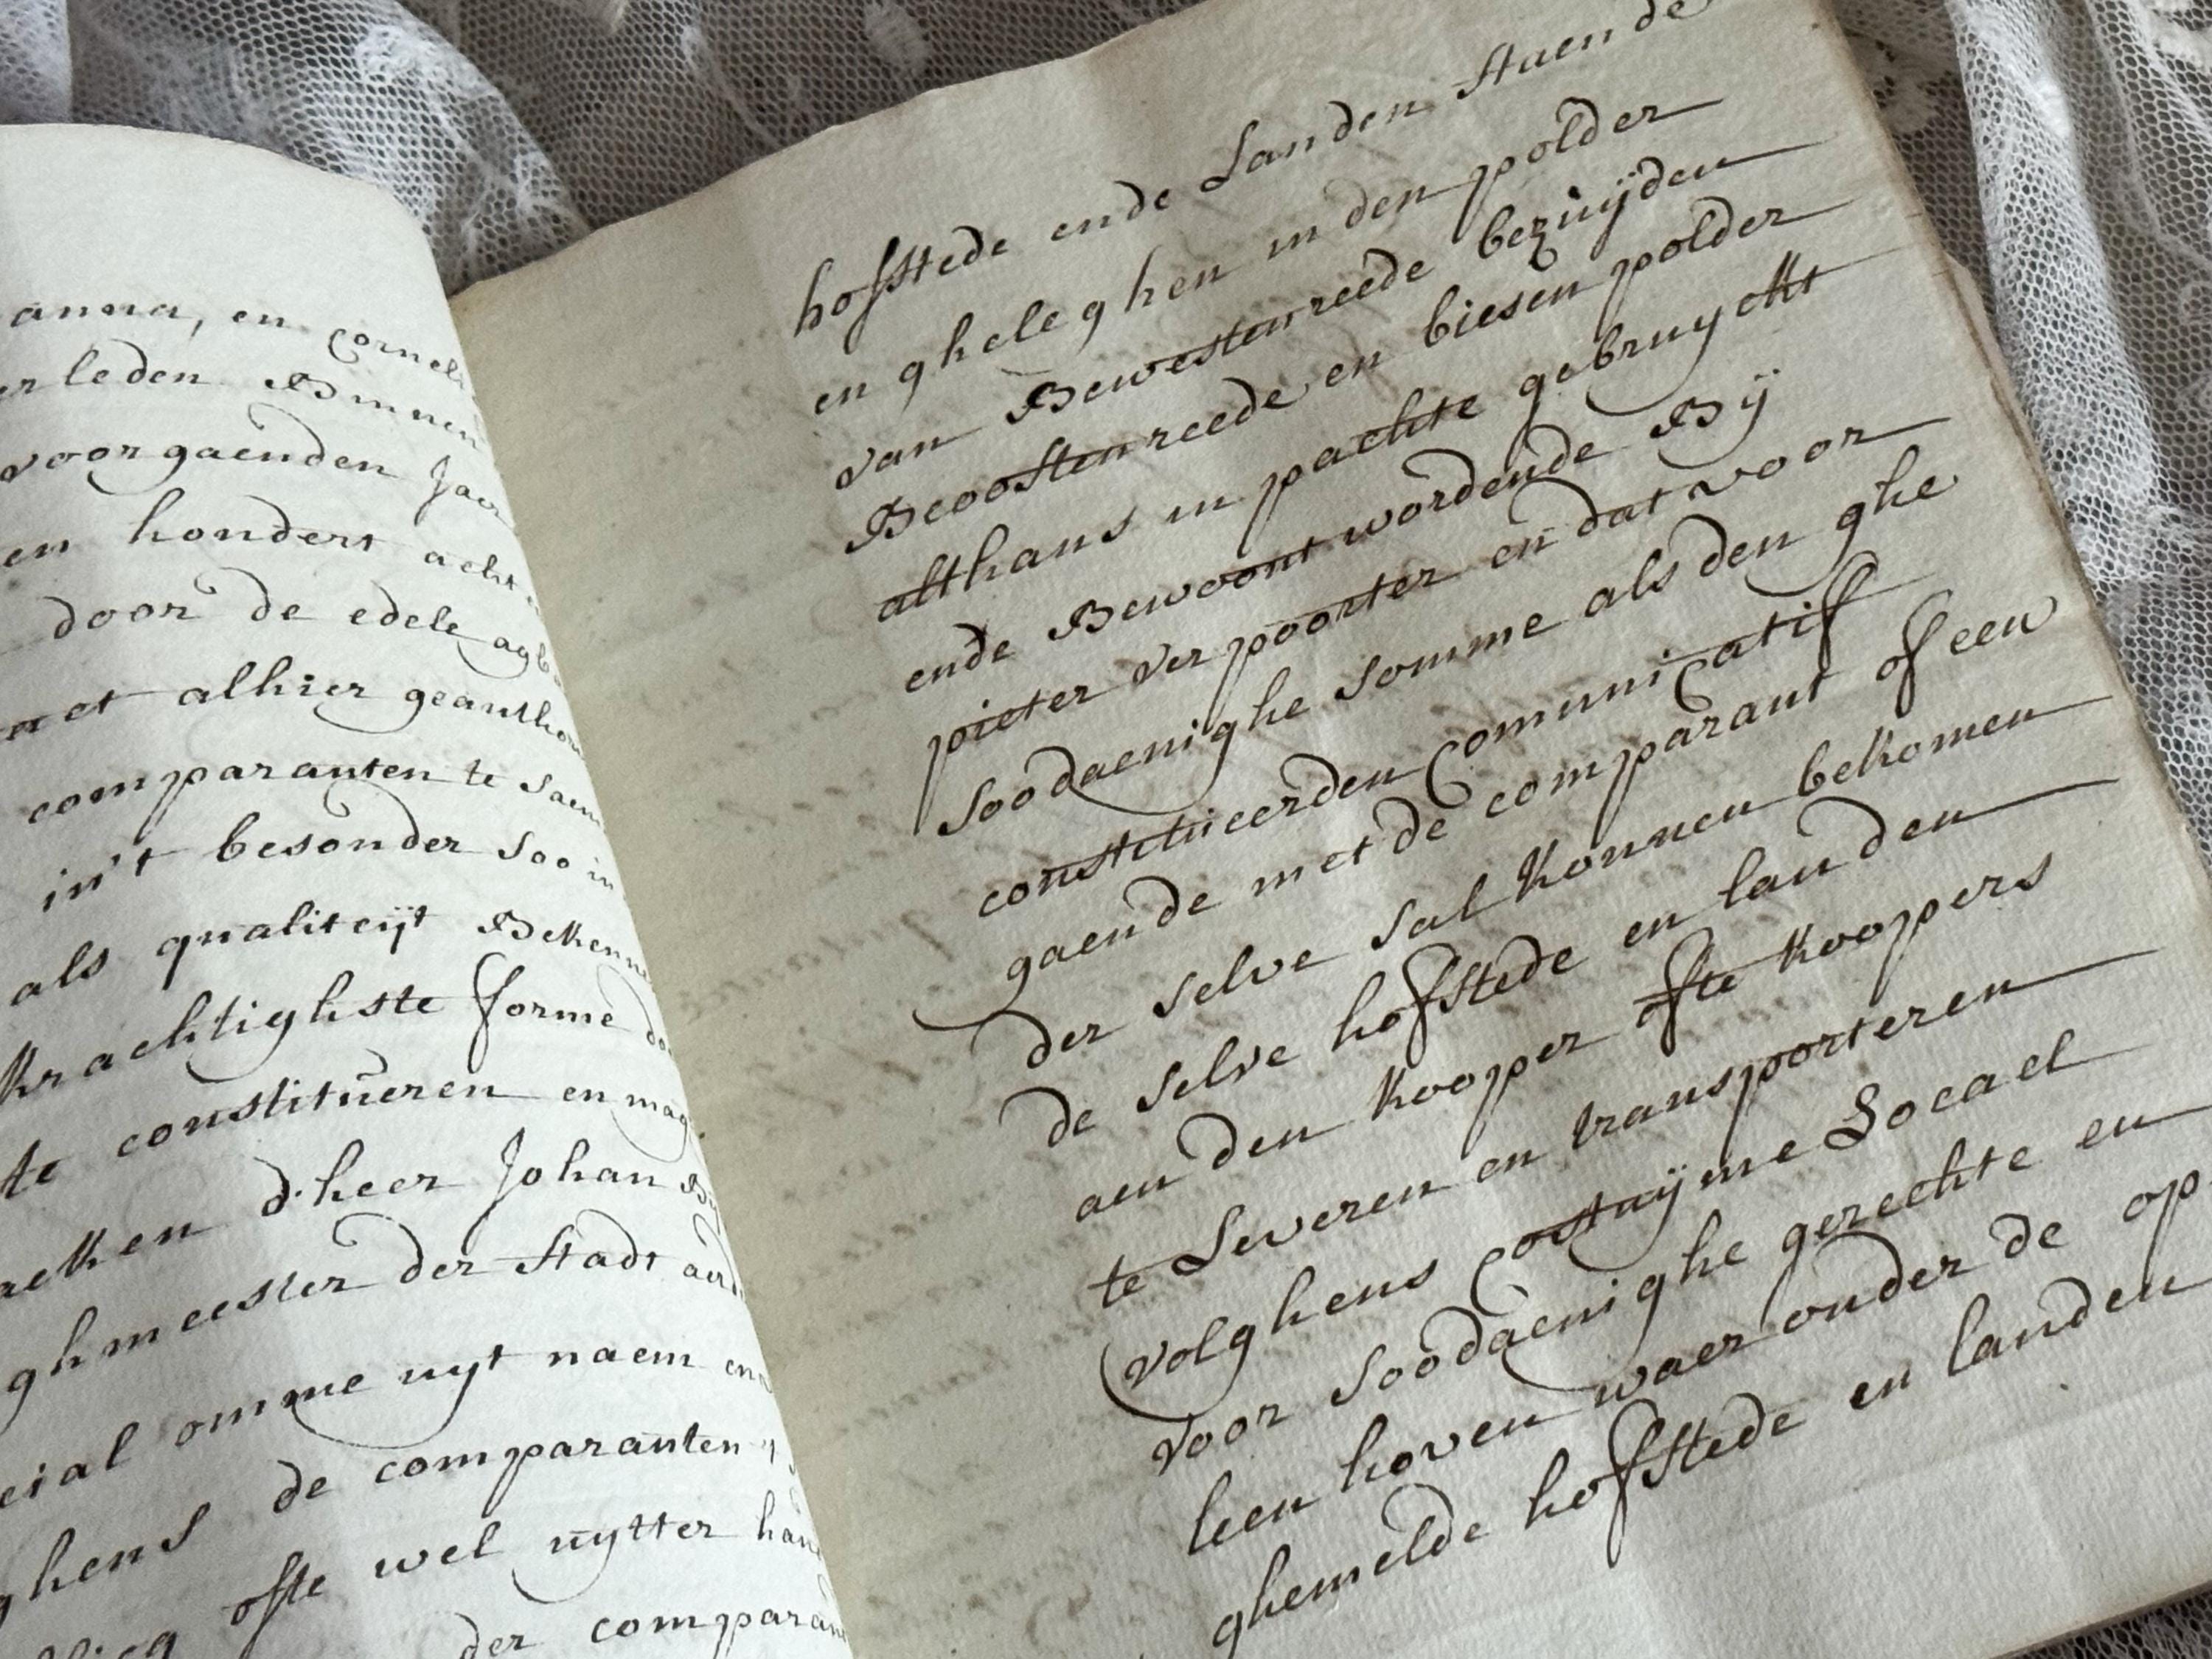 anna, en Corneli
er leden Binnen
voorgaenden Jaer
en hondert acht
door de edele agb
met alhier geauthor
comparanten te saem
in't besonder soo in
als qualiteijt Bekenne
krachtighste forme do
te constitueren en mag
acken d'heer Johan
ghmeester der Stadt aerd
cial omme uyt naem en
ghens de comparanten
ofte wel uytter han
der comparan
hofstede ende Landen staende
en gheleghen in den polder
van Bewestenreede bezuijden
Beoostenreede en biesen polder
althans in pachte gebruyckt
ende Bewoont wordende Bij
pieter verpoorter en dat voor
soodaenighe somme als den ghe
constitueerden Communicatif
gaende met de comparant of een
der selve sal konnen bekomen
de selve hofstede en landen
aen den kooper ofte koopers
te Leveren en transporteren
volghens Costuijme Locael
voor soodaenighe gerechte en
leen hoven waer onder de op
ghemelde hofstede en landen